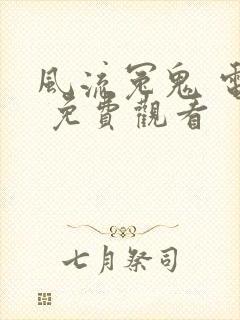 風流冤鬼 電
免費觀看
七月祭司